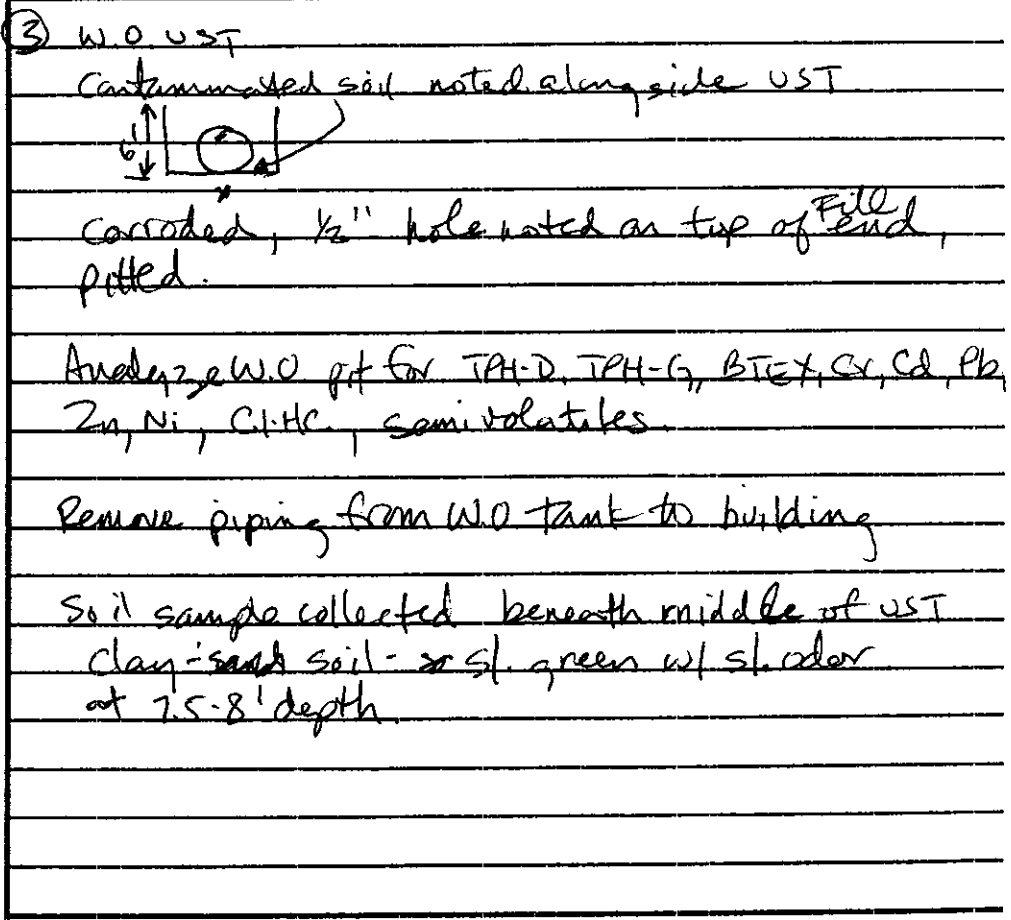 ③ W.O. UST
Contaminated soil noted alongside UST
6'
x
Corroded, 1/2" hole noted on top of Fill end,
pitted.
Analyze W.O pit for TPH-D, TPH-G, BTEX, Cr, Cd, Pb,
Zn, Ni, Cl.HC., semivolatiles.
Remove piping from W.O tank to building
Soil sample collected beneath middle of UST
clay - soil - sl. green w/ sl. odor
at 7.5-8' depth.